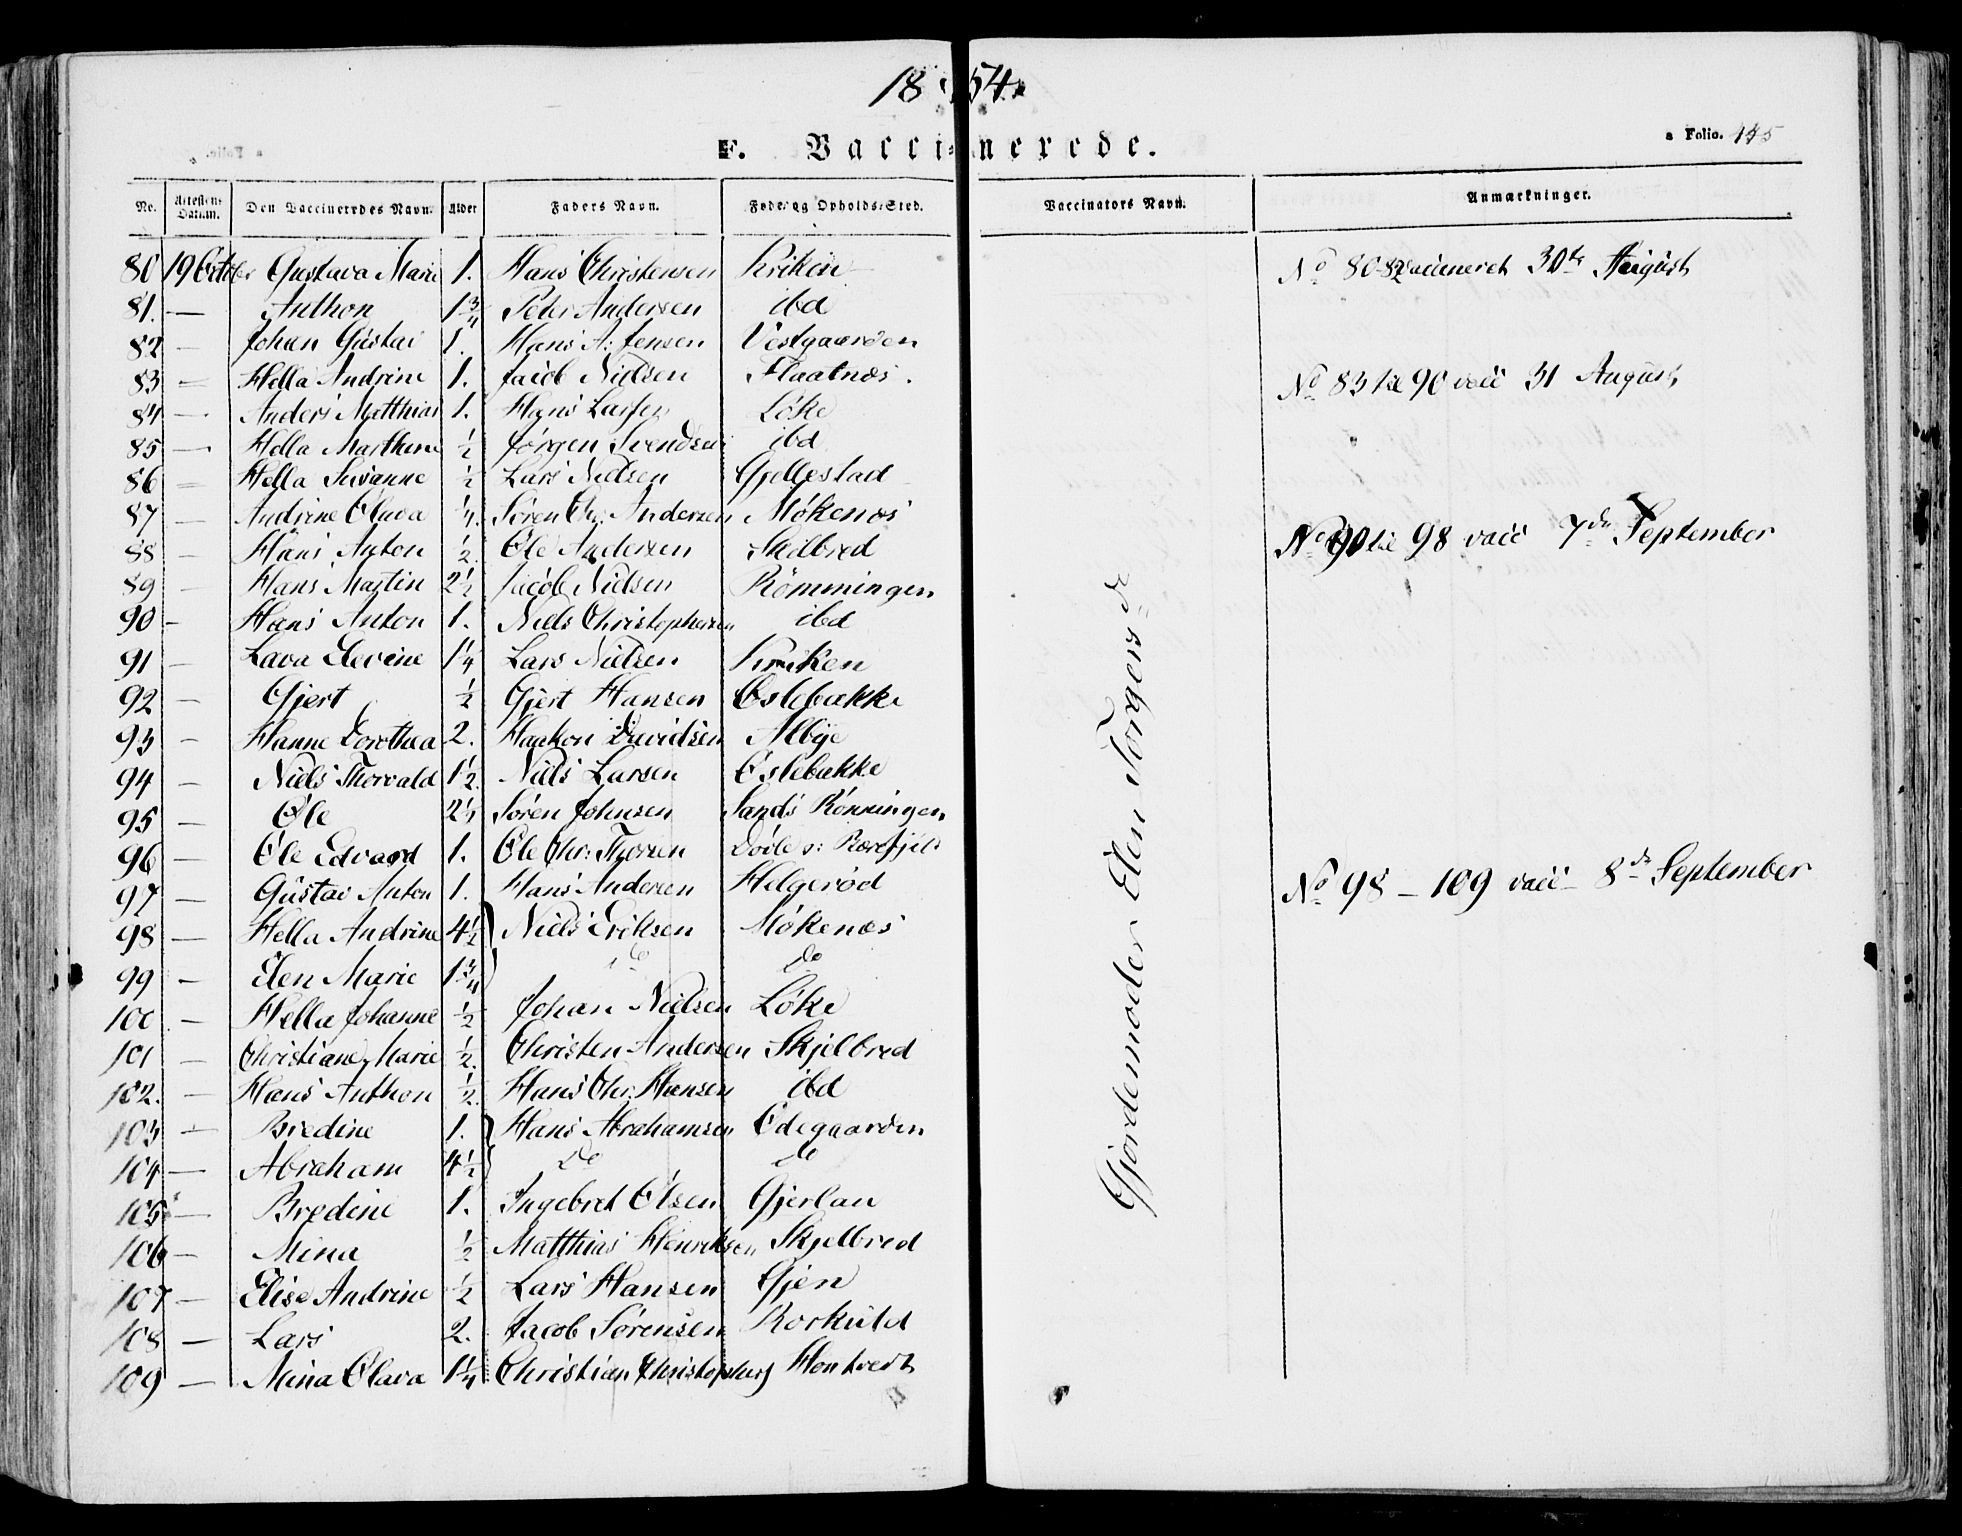 1854.
F. Vaccinerede.
a Folio. 145
No. Attestens Datum. Den Vaccineredes Navn. Alder Faders Navn. Føde- og Opholds-Sted. Vaccinators Navn. Anmærkninger.
80 19 October Gustava Marie 1. Hans Christensen Kriken No 80-82 vaccineret 30te August
81. — Anthon 1 3/4 Peter Andersen ibd
82 — Johan Gustav 1. Hans A: Jensen Vestgaarden
83 — Hella Andrine 1. Jacob Nielsen Flaatnæs. No 83 til 90 vacc 31 August
84 — Anders Matthias 1. Hans Larsen Løke
85 — Hella Marthine 1/2 Jørgen Svendsen ibd
86 — Hella Susanne 1/2 Lars Nielsen Gjellestad
87 — Andrine Olava Søren Chr: Andersen Møkenæs
88 — Hans Anton 1/2 Ole Andersen Skilbred No 90 til 98 vacc 7de September
89 — Hans Martin 2 1/2 Jacob Nielsen Rømmingen
90 — Hans Anton 1. Niels Christophersen ibd
91 — Lava Elevine 1 1/4 Lars Nielsen Kriken
92 — Gjert 1/2 Gjert Hansen Oslebakke
93 — Hanne Dorothea 2. Haakon Davidsen Albye
94 — Niels Thorvald 1 1/2 Niels Larsen Oslebakke
95 — Ole Søren Johnsen Sands Rønningen
96 — Ole Edvard 1. Ole Chr: Thorsen
97 — Gustav Anton 1. Hans Andersen Helgerød No 98 – 109 vacc 8de September
98 — Hella Andrine 4 1/2 Niels Eriksen Møkenæs
99 — Elen Marie 1 3/4 do do
100 — Hella Johanne 1/2 Johan Nielsen Løke
101 — Christiane Marie 1/2 Christen Andersen Skjelbred
102. — Hans Anthon 1/2 Hans Chr: Hansen ibd
103 — Bredine 1. Hans Abrahamsen Ødegaarden
104 — Abraham 4 1/2 do do
105 — Bredine 1. Ingebret Olsen Gjerlau
106 — Mina 1/2 Matthias Henriksen Skjelbred
107 — Elise Andrine 1/2 Lars Hansen Gjen
108 — Lars 2. Jacob Sørensen
109 — Mina Olava 1 1/4 Christian Hontvedt
Gjordemoder Elen Torgersdr